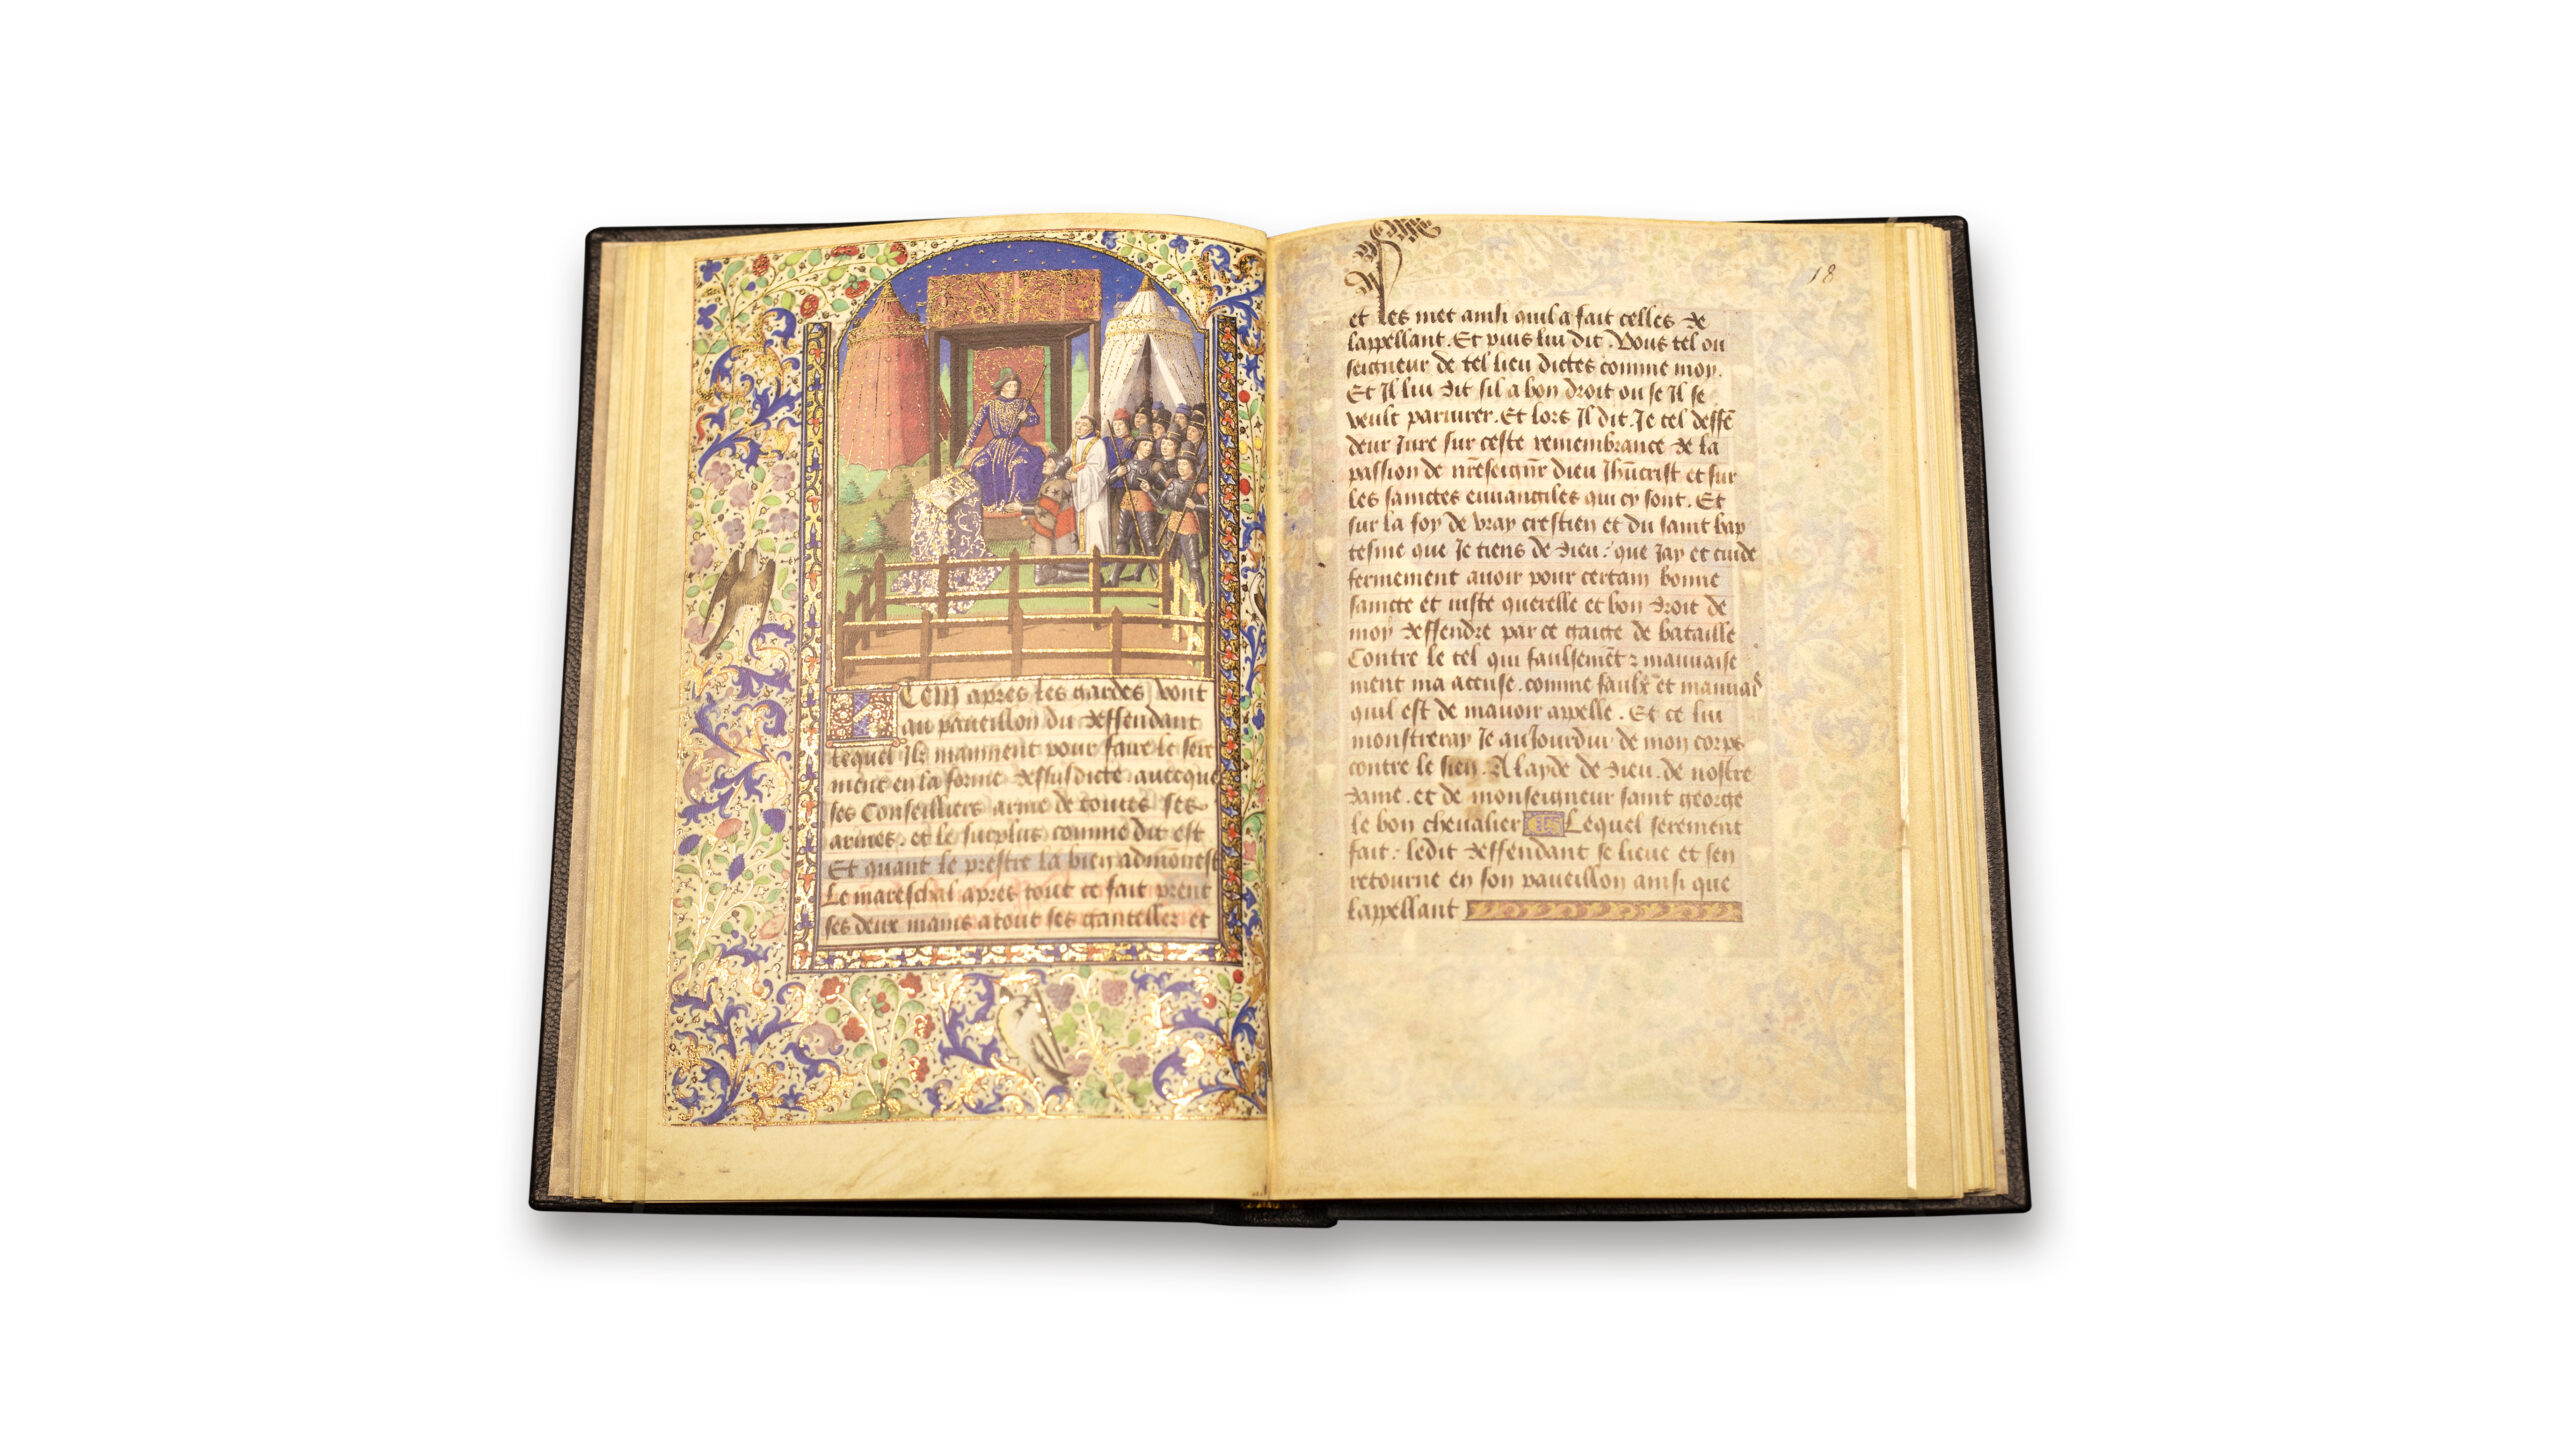 Item apres les gardes vont
au paveillon du deffendant
lequel Ilz mainnent pour faire le sere
ment en la forme dessusdicte avecques
ses Conseilliers arme de toutes ses
armes. et le surplus comme dit est
Et quant le prestre la bien admoneste
Le mareschal apres tout ce fait prent
ses deux mains atout ses gantellez et
18
et les met ainsi quil a fait celles de
lappellant. Et puis lui dit. Vous tel ou
seigneur de tel lieu dictes comme moy.
Et Il lui dit sil a bon droit ou se Il se
veult pariurer. Et lors Il dit. Je tel deffē
deur Jure sur ceste remembrance de la
passion de nr̄eseignr̄ dieu Jhūcrist et sur
les sainctes euuangiles qui cy sont. Et
sur la foy de vray crestien et du saint bap
tesme que Je tiens de dieu. que Jay et cuide
fermement auoir pour certain bonne
saincte et iuste querelle et bon droit de
moy deffendre par ce gaige de bataille
Contre le tel qui faulsemēt ⁊ mauuaise
ment ma accuse. comme faulx et mauuais
quil est de mauoir appelle. Et ce lui
monstreray Je auJourdui de mon corps
contre le sien. A layde de dieu. de nostre
dame. et de monseigneur saint george
le bon cheualier Lequel serement
fait. ledit deffendant se lieue et sen
retourne en son paueillon ainsi que
lappellant